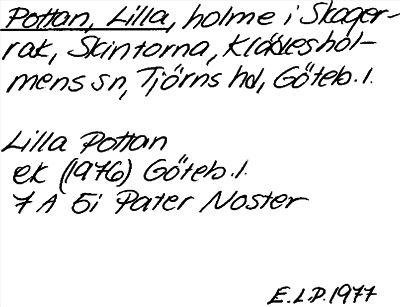 Pottan, Lilla, holme i Skager-
rak, Skintorna, Klädeshol-
mens sn, Tjörns hd, Göteb. l.
Lilla Pottan
ek (1976) Göteb. l.
7 A 5i Pater Noster
E.L.P. 1977